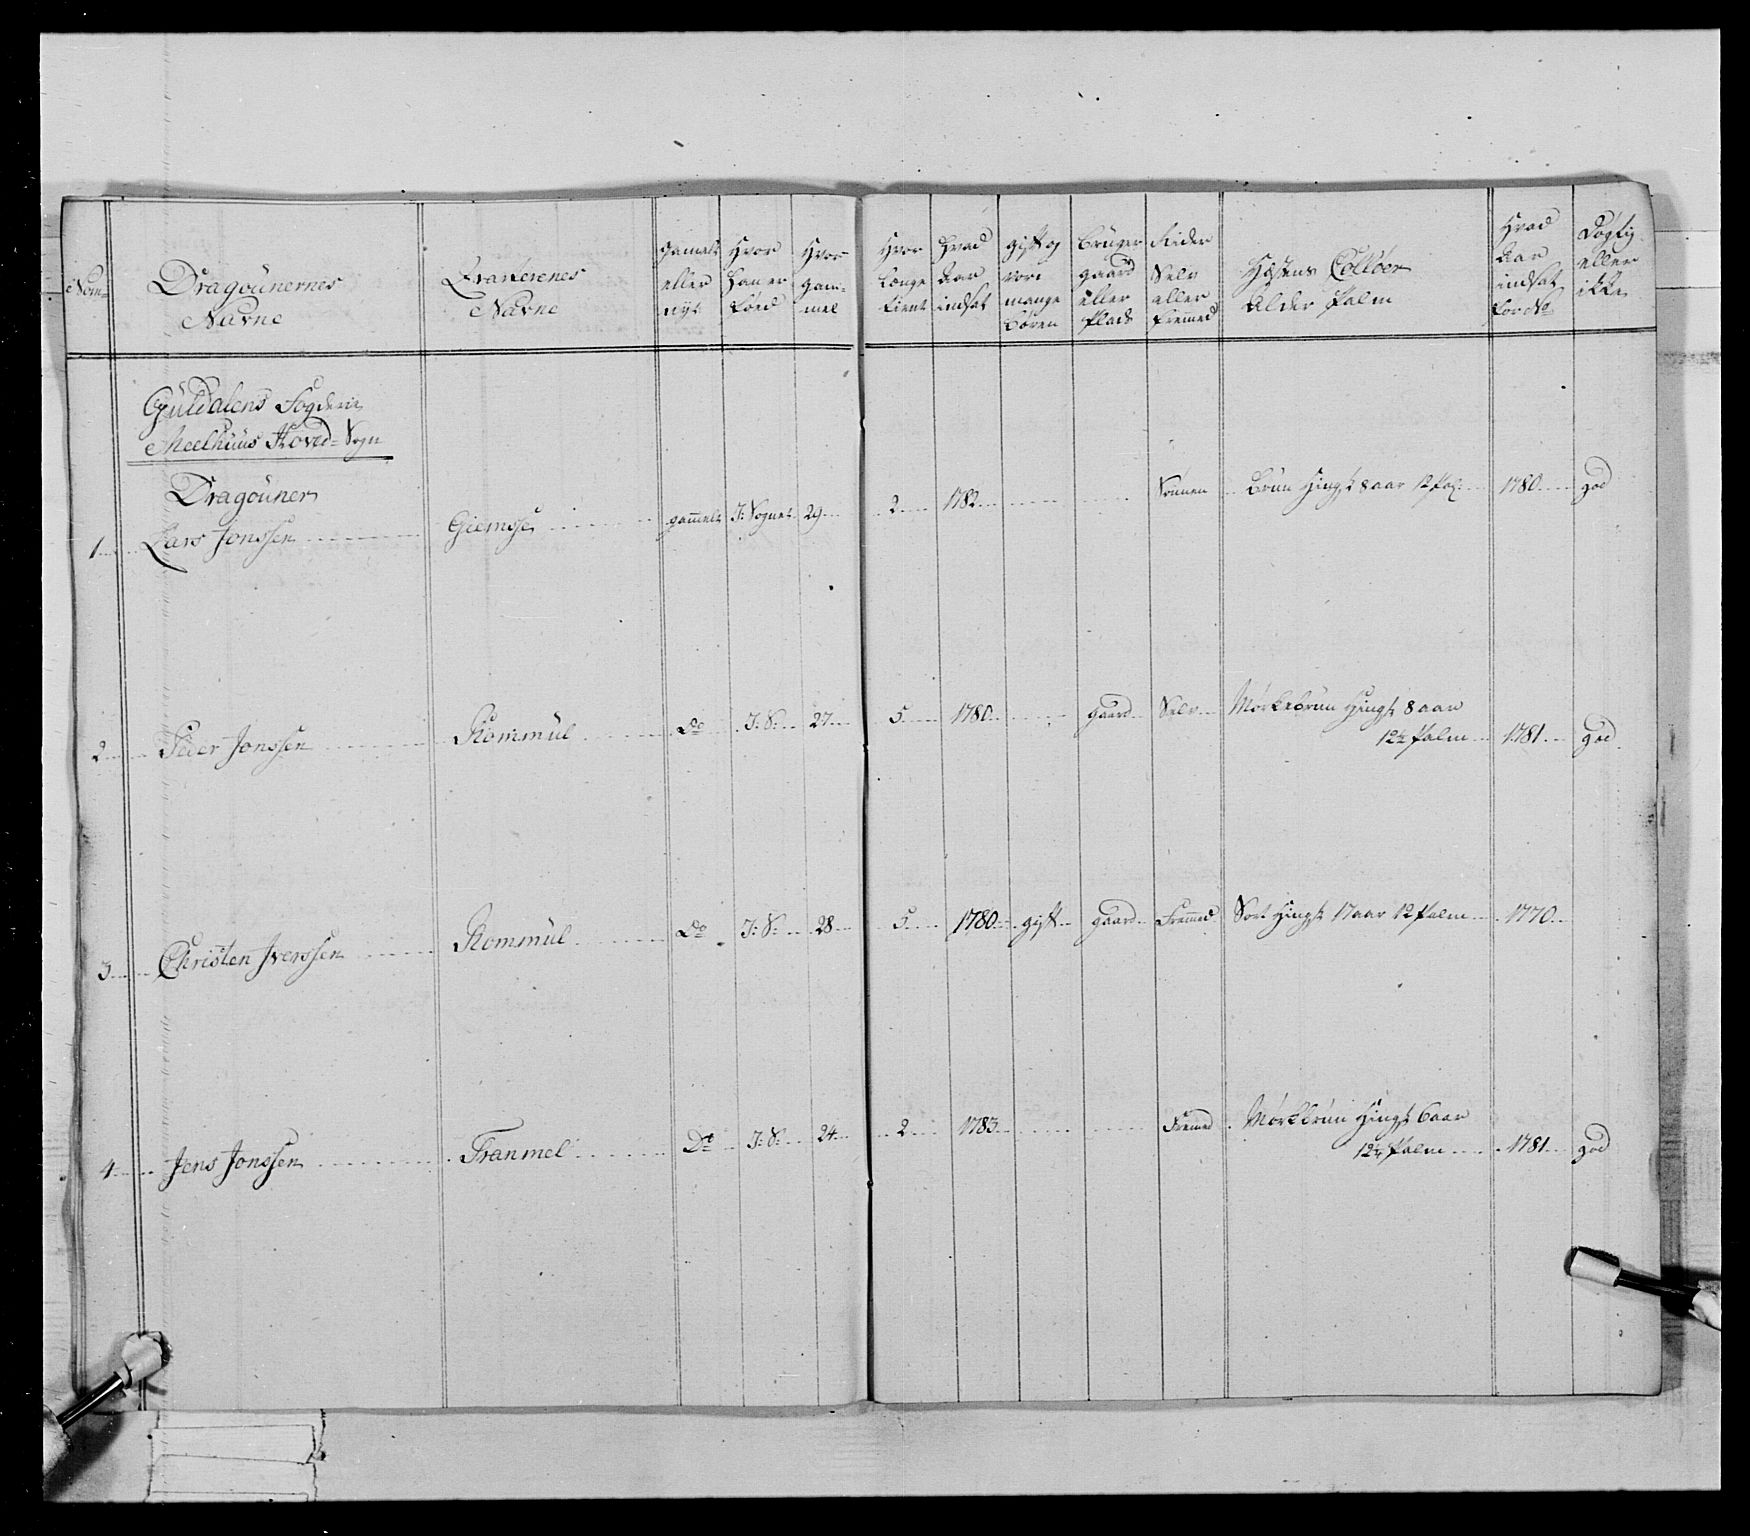 Nom=
Dragounernes
Navne
Navne
gamelt
eller
nÿt
Hvor
Han er
föed
Hvor
gam=
mel
Hvor
Længe
tient
Hvad
Aar
indsat
gift og
vor
mange
börn
brüger
gaard
eller
Plads
Rider
Selv
eller
fremmed
Hæstens Collöer
Alder Palm
Hvad
Aar
indsat
Dögtig
eller
ikke
Guldalens Fogderie
Meelhuus Hoved=Sogn
Dragouner
1 Lars Jonssen Giemsse gammelt I: Sognet 29 2 1782 Sönnen Brun Hingst 8 aar 12 Pal: 1780 god
2 Peder Jonssen Rommül do I: S: 27 5 1780 gaard Selv Mörkebrun Hingst 8 aar
12¼ Palm 1781 god
3 Christen Iverssen Rommül do I: S: 28 5 1780 gift gaard Fremmed Sort Hingst 17 aar 12 Palm 1770
4 Jens Jonssen Tranmel Do I: S: 24 2 1783 Fremed Mörkbrun Hingst 6 aar
12¼ Palm 1781 god